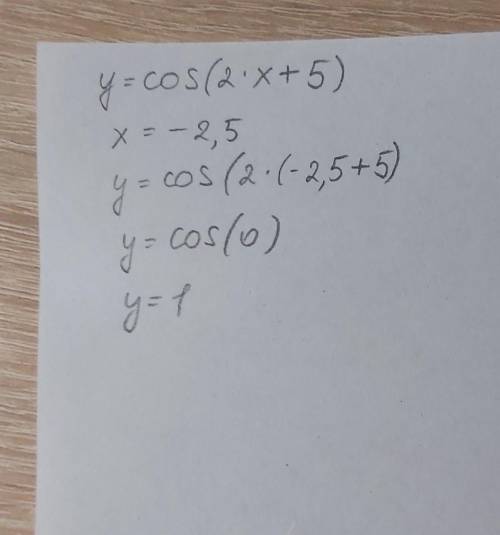 y = cos(2·x+5)
x = -2,5
y = cos(2·(-2,5+5)
y = cos(0)
y = 1